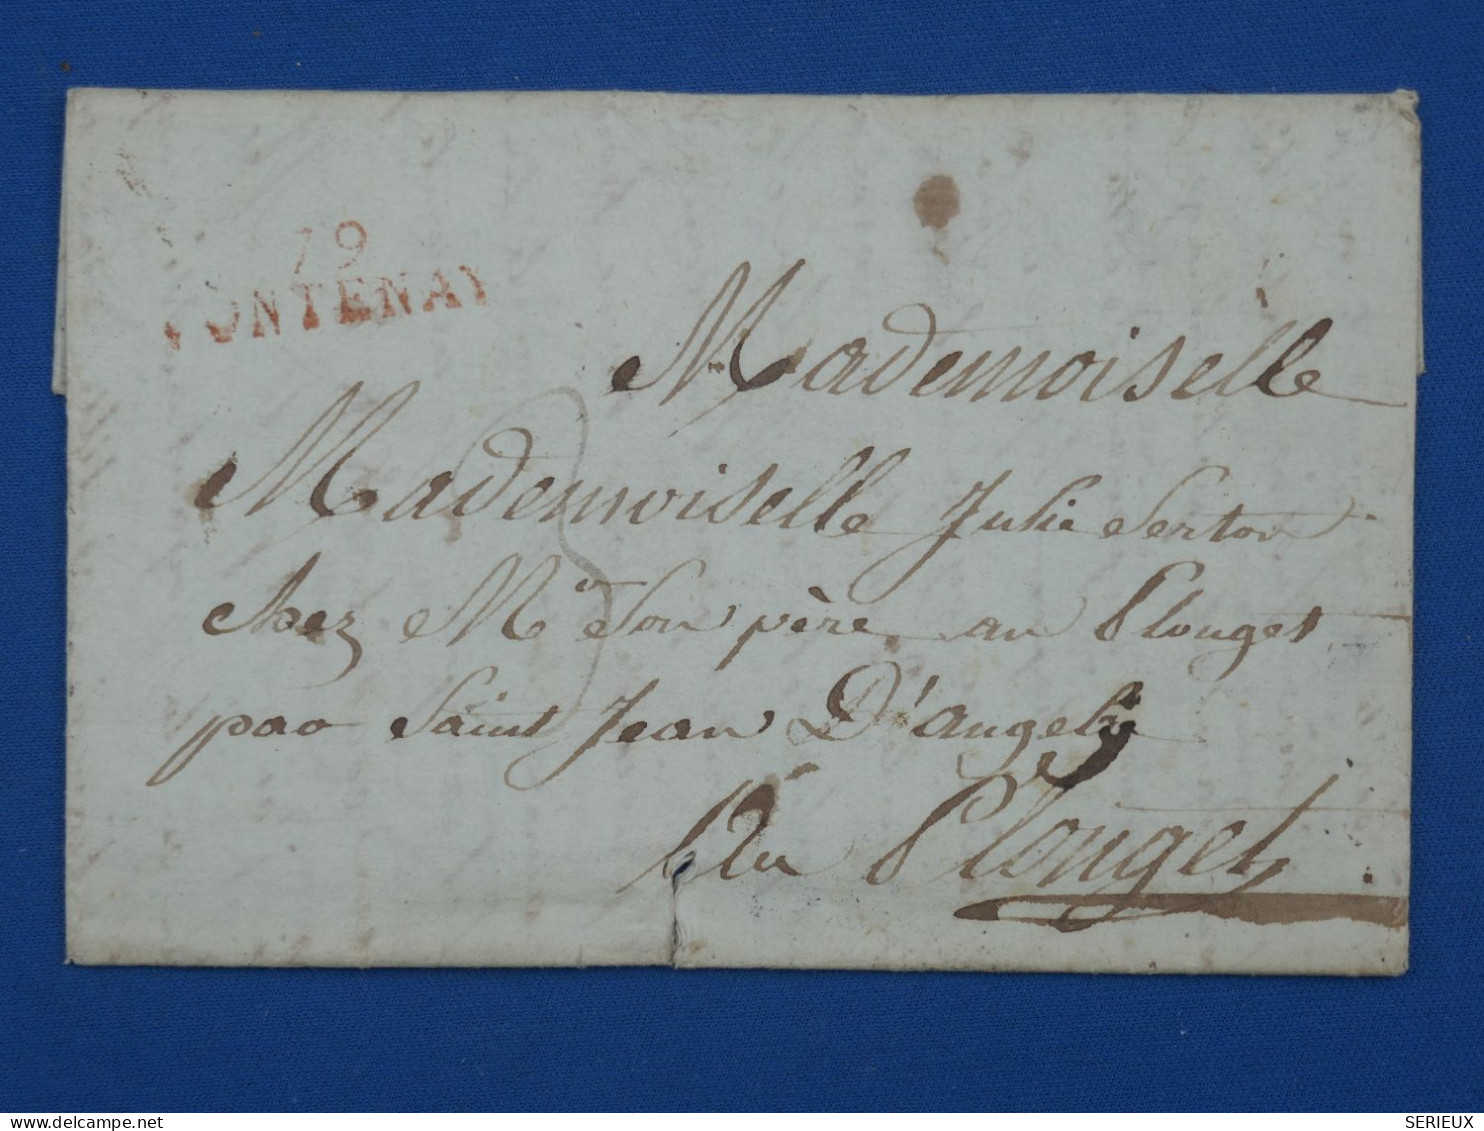 79
FONTENAY
Mademoiselle
Mademoiselle Julie Serton
chez Mr Son père au Plouget
par Saint Jean D'angely
Au Plouget
SERIEUX
delcampe.net